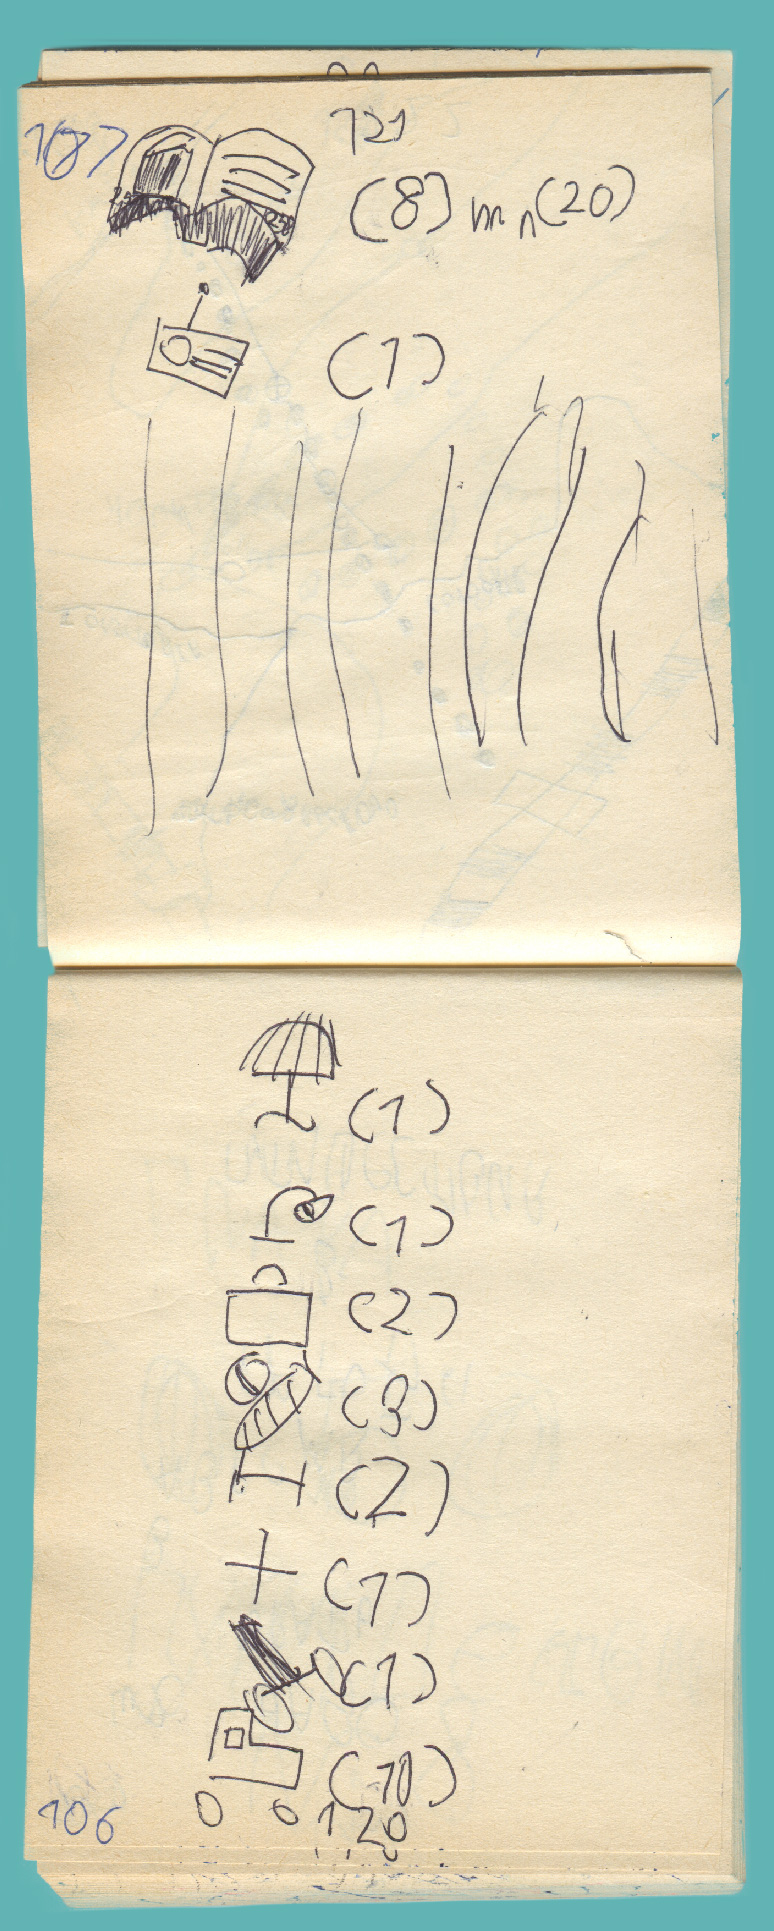 107
721
(8) m n (20)
(1)
(1)
(1)
(2)
(3)
(2)
(1)
(1)
(10)
106
120